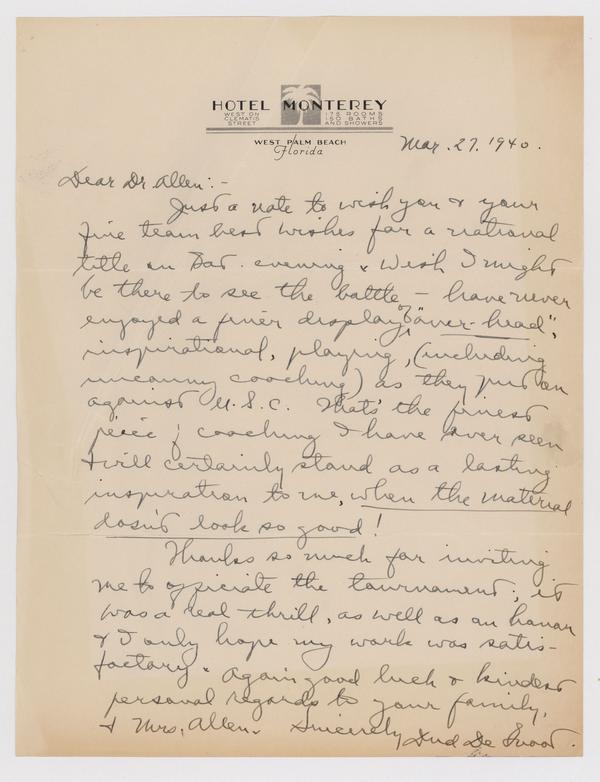 HOTEL MONTEREY
WEST ON
CLEMATIS
STREET
175 ROOMS
150 BATHS
AND SHOWERS
WEST PALM BEACH
Florida
Mar. 27, 1940.
Dear Dr. Allen:-
Just a note to wish you & your
fine team best wishes for a national
title on Sat. evening & wish I might
be there to see the battle - have never
enjoyed a finer display of "over-head",
inspirational, playing, (including
uncanny coaching) as they put on
against U.S.C. That's the finest
peice of coaching I have ever seen
& will certainly stand as a lasting
inspiration to me, when the material
dosn't look so good!
Thanks so much for inviting
me to officiate the tournament; it
was a real thrill, as well as an honor
& I only hope my work was satis-
factory. Again good luck & kindest
personal regards to your family,
& Mrs. Allen. Sincerely, Dud De Groot.